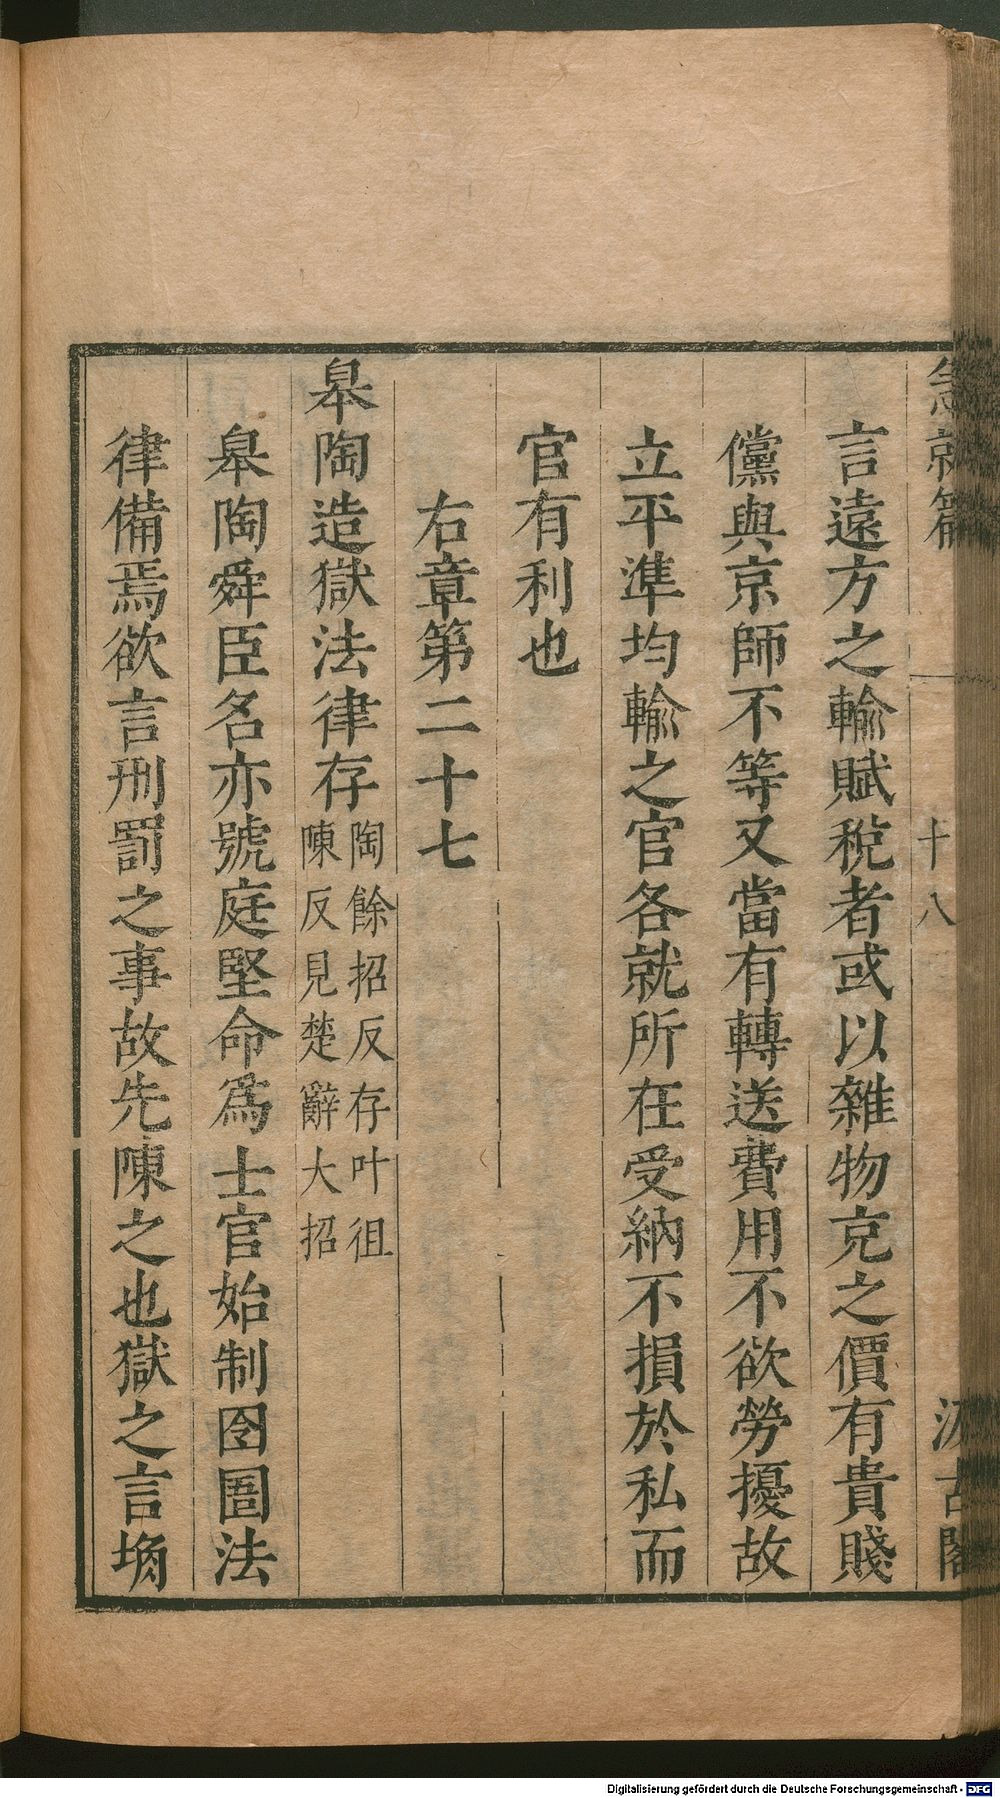 急就篇 十八 汲古閣
言遠方之輸賦稅者或以雜物充之價有貴賤
儻與京師不等又當有轉送費用不欲勞擾故
立平準均輸之官各就所在受納不損於私而
官有利也
右章第二十七
皋陶造獄法律存陶餘招反存叶徂
陳反見楚辭大招
皋陶舜臣名亦號庭堅命爲士官始制囹圄法
律備焉欲言刑罰之事故先陳之也獄之言埆
Digitalisierung gefördert durch die Deutsche Forschungsgemeinschaft - DFG